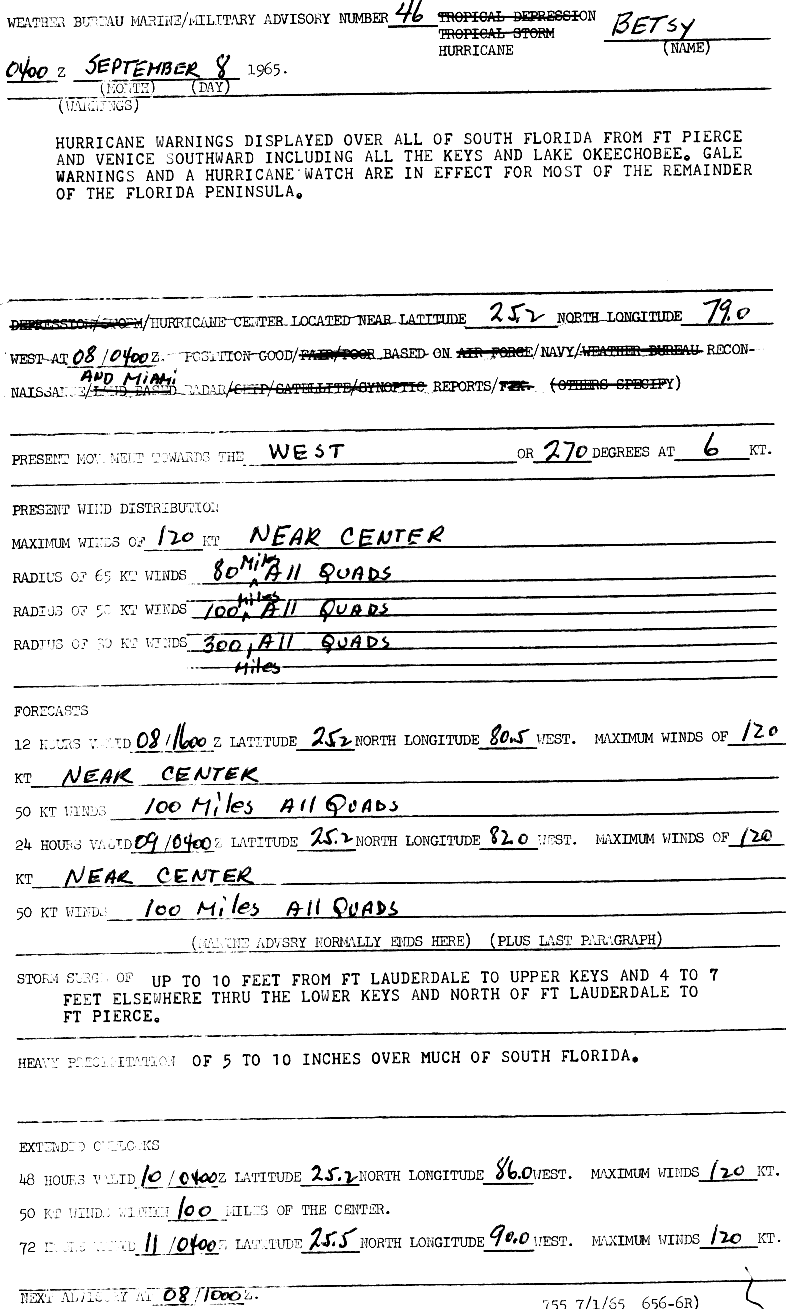 WEATHER BUREAU MARINE/MILITARY ADVISORY NUMBER 46 TROPICAL DEPRESSION BETSY
TROPICAL STORM
HURRICANE (NAME)
0400 Z SEPTEMBER 8 1965.
(MONTH) (DAY)
(WARNINGS)
HURRICANE WARNINGS DISPLAYED OVER ALL OF SOUTH FLORIDA FROM FT PIERCE
AND VENICE SOUTHWARD INCLUDING ALL THE KEYS AND LAKE OKEECHOBEE. GALE
WARNINGS AND A HURRICANE WATCH ARE IN EFFECT FOR MOST OF THE REMAINDER
OF THE FLORIDA PENINSULA.
DEPRESSION/STORM/HURRICANE CENTER LOCATED NEAR LATITUDE 25.2 NORTH LONGITUDE 79.0
WEST AT 08/0400Z. POSITION GOOD/FAIR/POOR BASED ON AIR FORCE/NAVY/WEATHER BUREAU RECON-
AND MIAMI
NAISSANCE/LAND BASED RADAR/SHIP/SATELLITE/SYNOPTIC REPORTS/ETC. (OTHERS SPECIFY)
PRESENT MOVEMENT TOWARDS THE WEST OR 270 DEGREES AT 6 KT.
PRESENT WIND DISTRIBUTION
MAXIMUM WINDS OF 120 KT NEAR CENTER
RADIUS OF 65 KT WINDS 80 Miles All QUADS
RADIUS OF 50 KT WINDS 100 Miles All QUADS
RADIUS OF 30 KT WINDS 300 Miles All QUADS
FORECASTS
12 HOURS VALID 08/1600 Z LATITUDE 25.2 NORTH LONGITUDE 80.5 WEST. MAXIMUM WINDS OF 120
KT NEAR CENTER
50 KT WINDS 100 Miles All QUADS
24 HOURS VALID 09/0400 Z LATITUDE 25.2 NORTH LONGITUDE 82.0 WEST. MAXIMUM WINDS OF 120
KT NEAR CENTER
50 KT WINDS 100 Miles All QUADS
(MARINE ADVSRY NORMALLY ENDS HERE) (PLUS LAST PARAGRAPH)
STORM SURGE OF UP TO 10 FEET FROM FT LAUDERDALE TO UPPER KEYS AND 4 TO 7
FEET ELSEWHERE THRU THE LOWER KEYS AND NORTH OF FT LAUDERDALE TO
FT PIERCE.
HEAVY PRECIPITATION OF 5 TO 10 INCHES OVER MUCH OF SOUTH FLORIDA.
EXTENDED OUTLOOKS
48 HOURS VALID 10/0400Z LATITUDE 25.2 NORTH LONGITUDE 86.0 WEST. MAXIMUM WINDS 120 KT.
50 KT WINDS WITHIN 100 MILES OF THE CENTER.
72 HOURS VALID 11/0400Z LATITUDE 25.5 NORTH LONGITUDE 90.0 WEST. MAXIMUM WINDS 120 KT.
NEXT ADVISORY AT 08/1000Z.
755 7/1/65 656-6R)